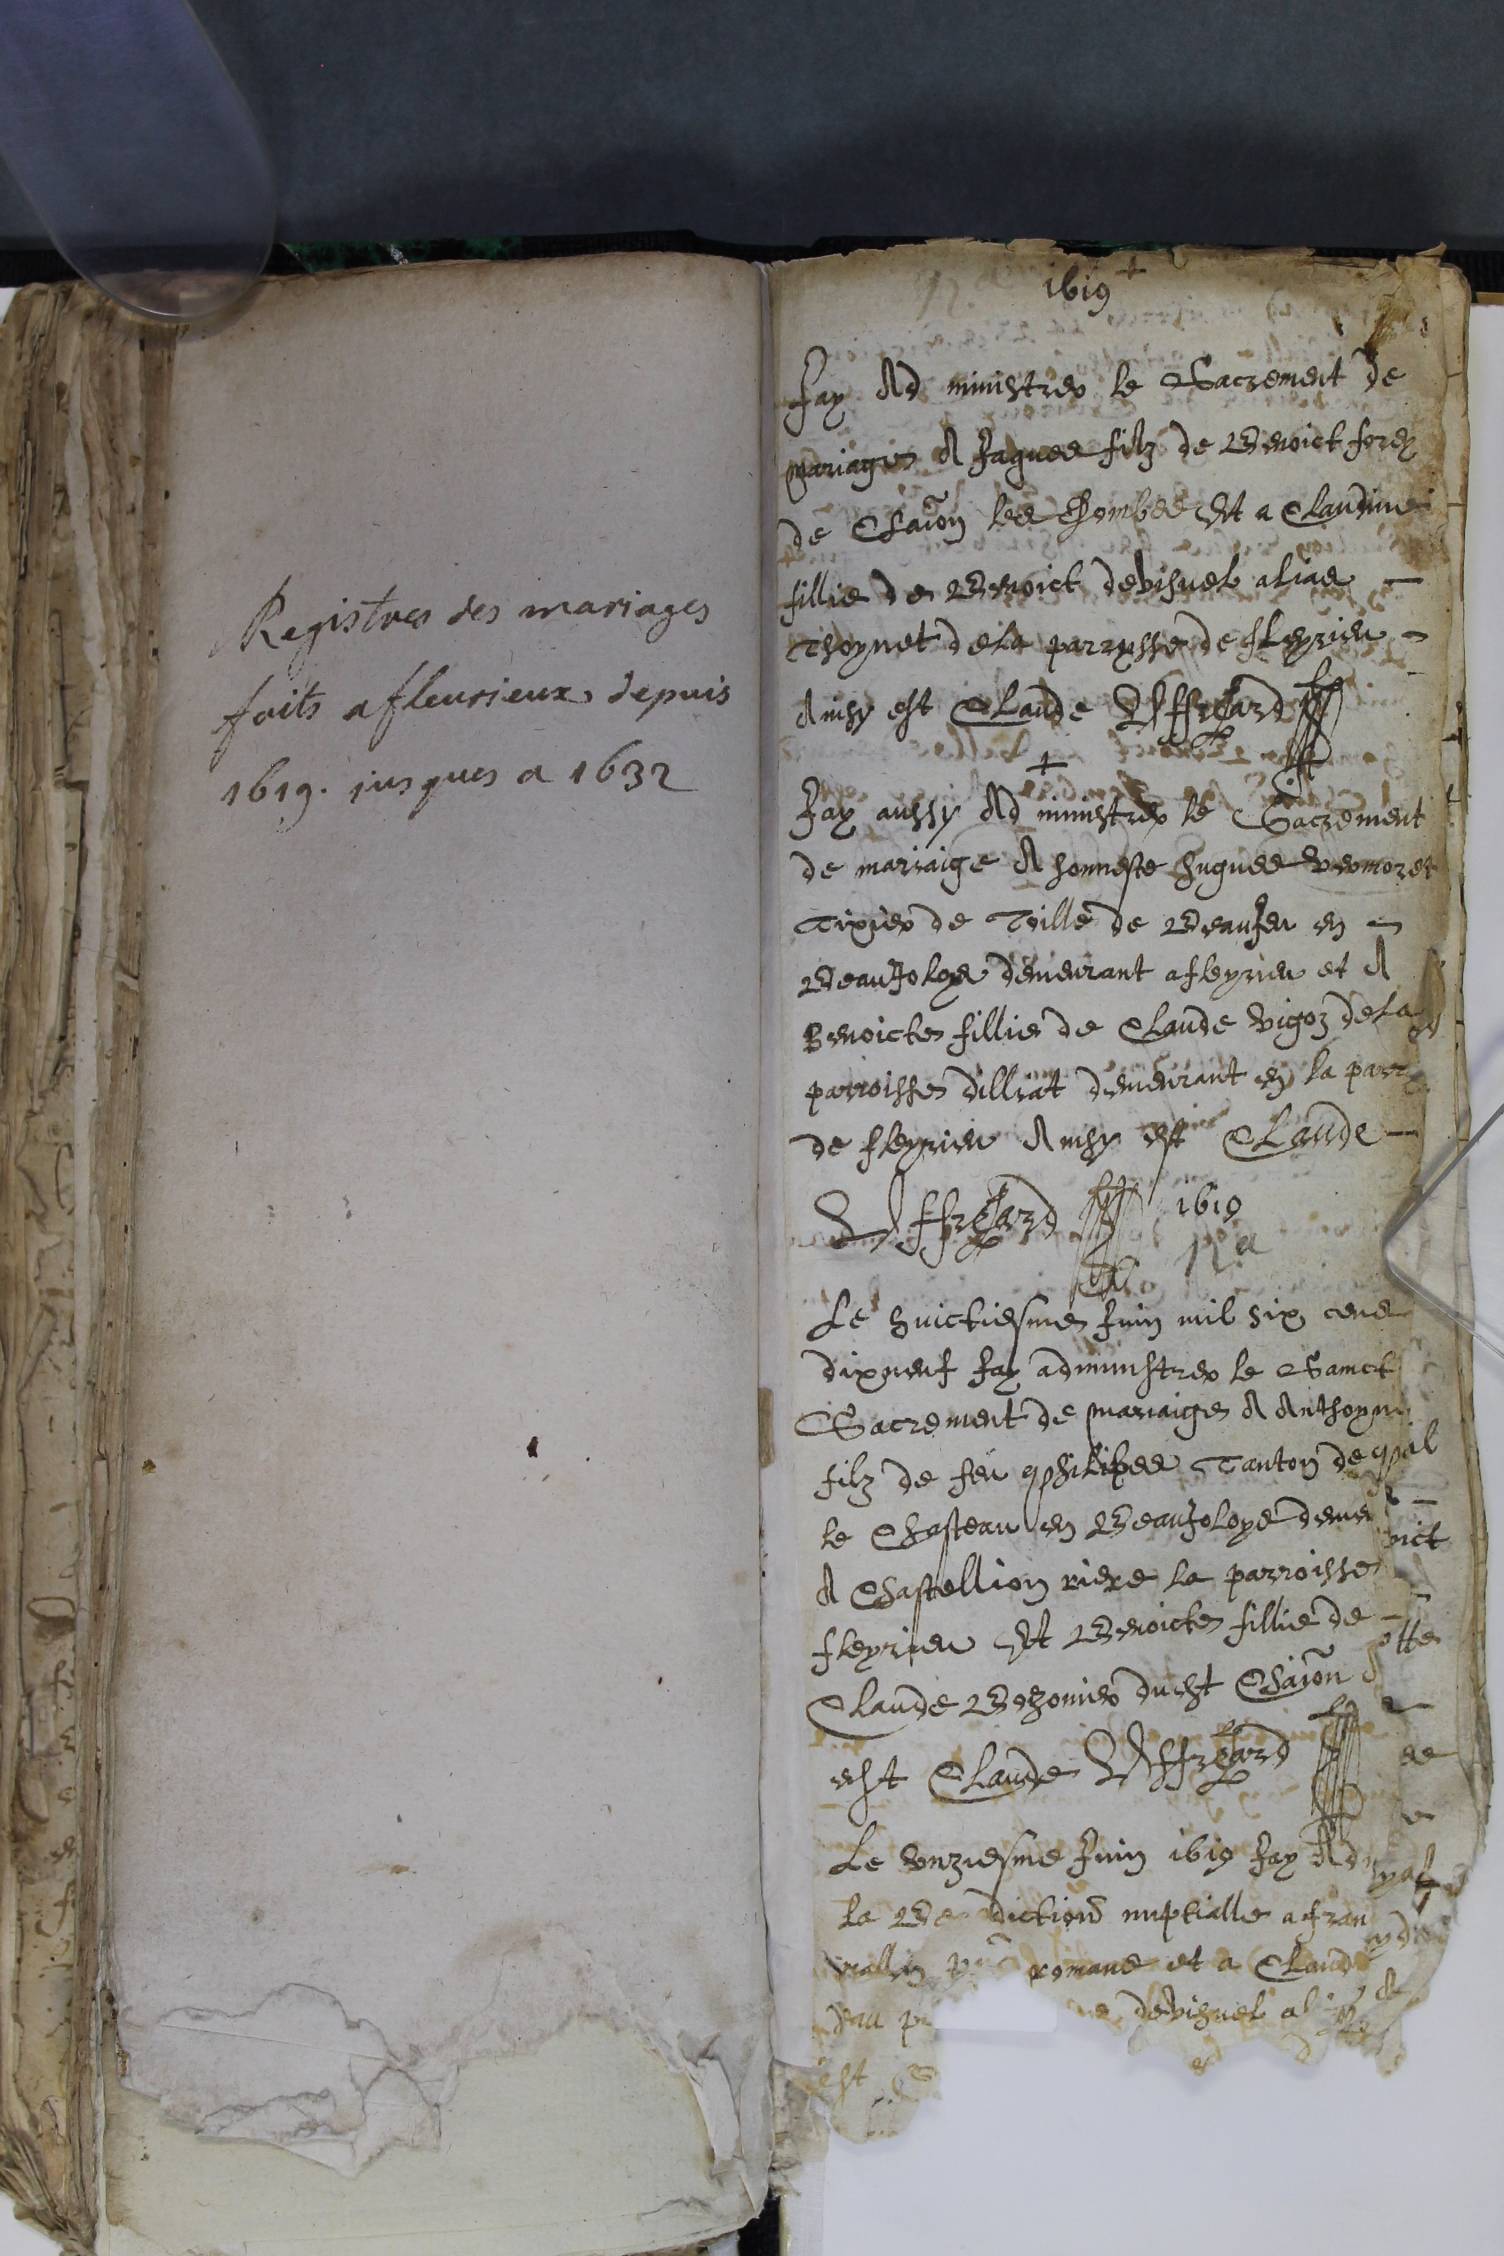 Registres des mariages
faits a fleurieux depuis
1619. jusques a 1632
1619 +
Jay Ad ministrer le Sacrement de
mariages A Jaques filz de Benoict forey
de Chaiõn les dombes Et a Claudine
fillie de Benoict devisuel alias —
Thoynet dela parrysse de fleyrieu —
Ainsy est Claude
+
Jay aussy Ad ministrer le Sacrement
de mariaige A honneste hugues
Tixier de Toille de Beaujeu en —
Beaujoloys demeurant afleyrieu et A
Benoictes fillie de Claude vigoz dela
parroisses dilliat demeurant en la parr
de fleyrieu Ainsy est Claude —
1619
Le huictiesme Juin mil six cens
dixneuf Jay administrer le Sainct
Sacrement de mariaiges A Anthoyne
filz de feu philibes Tanton de
le Chasteau en Beaujoloys deme
A Chastellion riere la parroisse
fleyrieu Et Benoictes fillie de
Claude ducht Chaiõn
est Claude
Le unziesme Juin 1619 Jay Ad
la Be diction nuptialle a fran
romans et a Claud
devisuel al
est